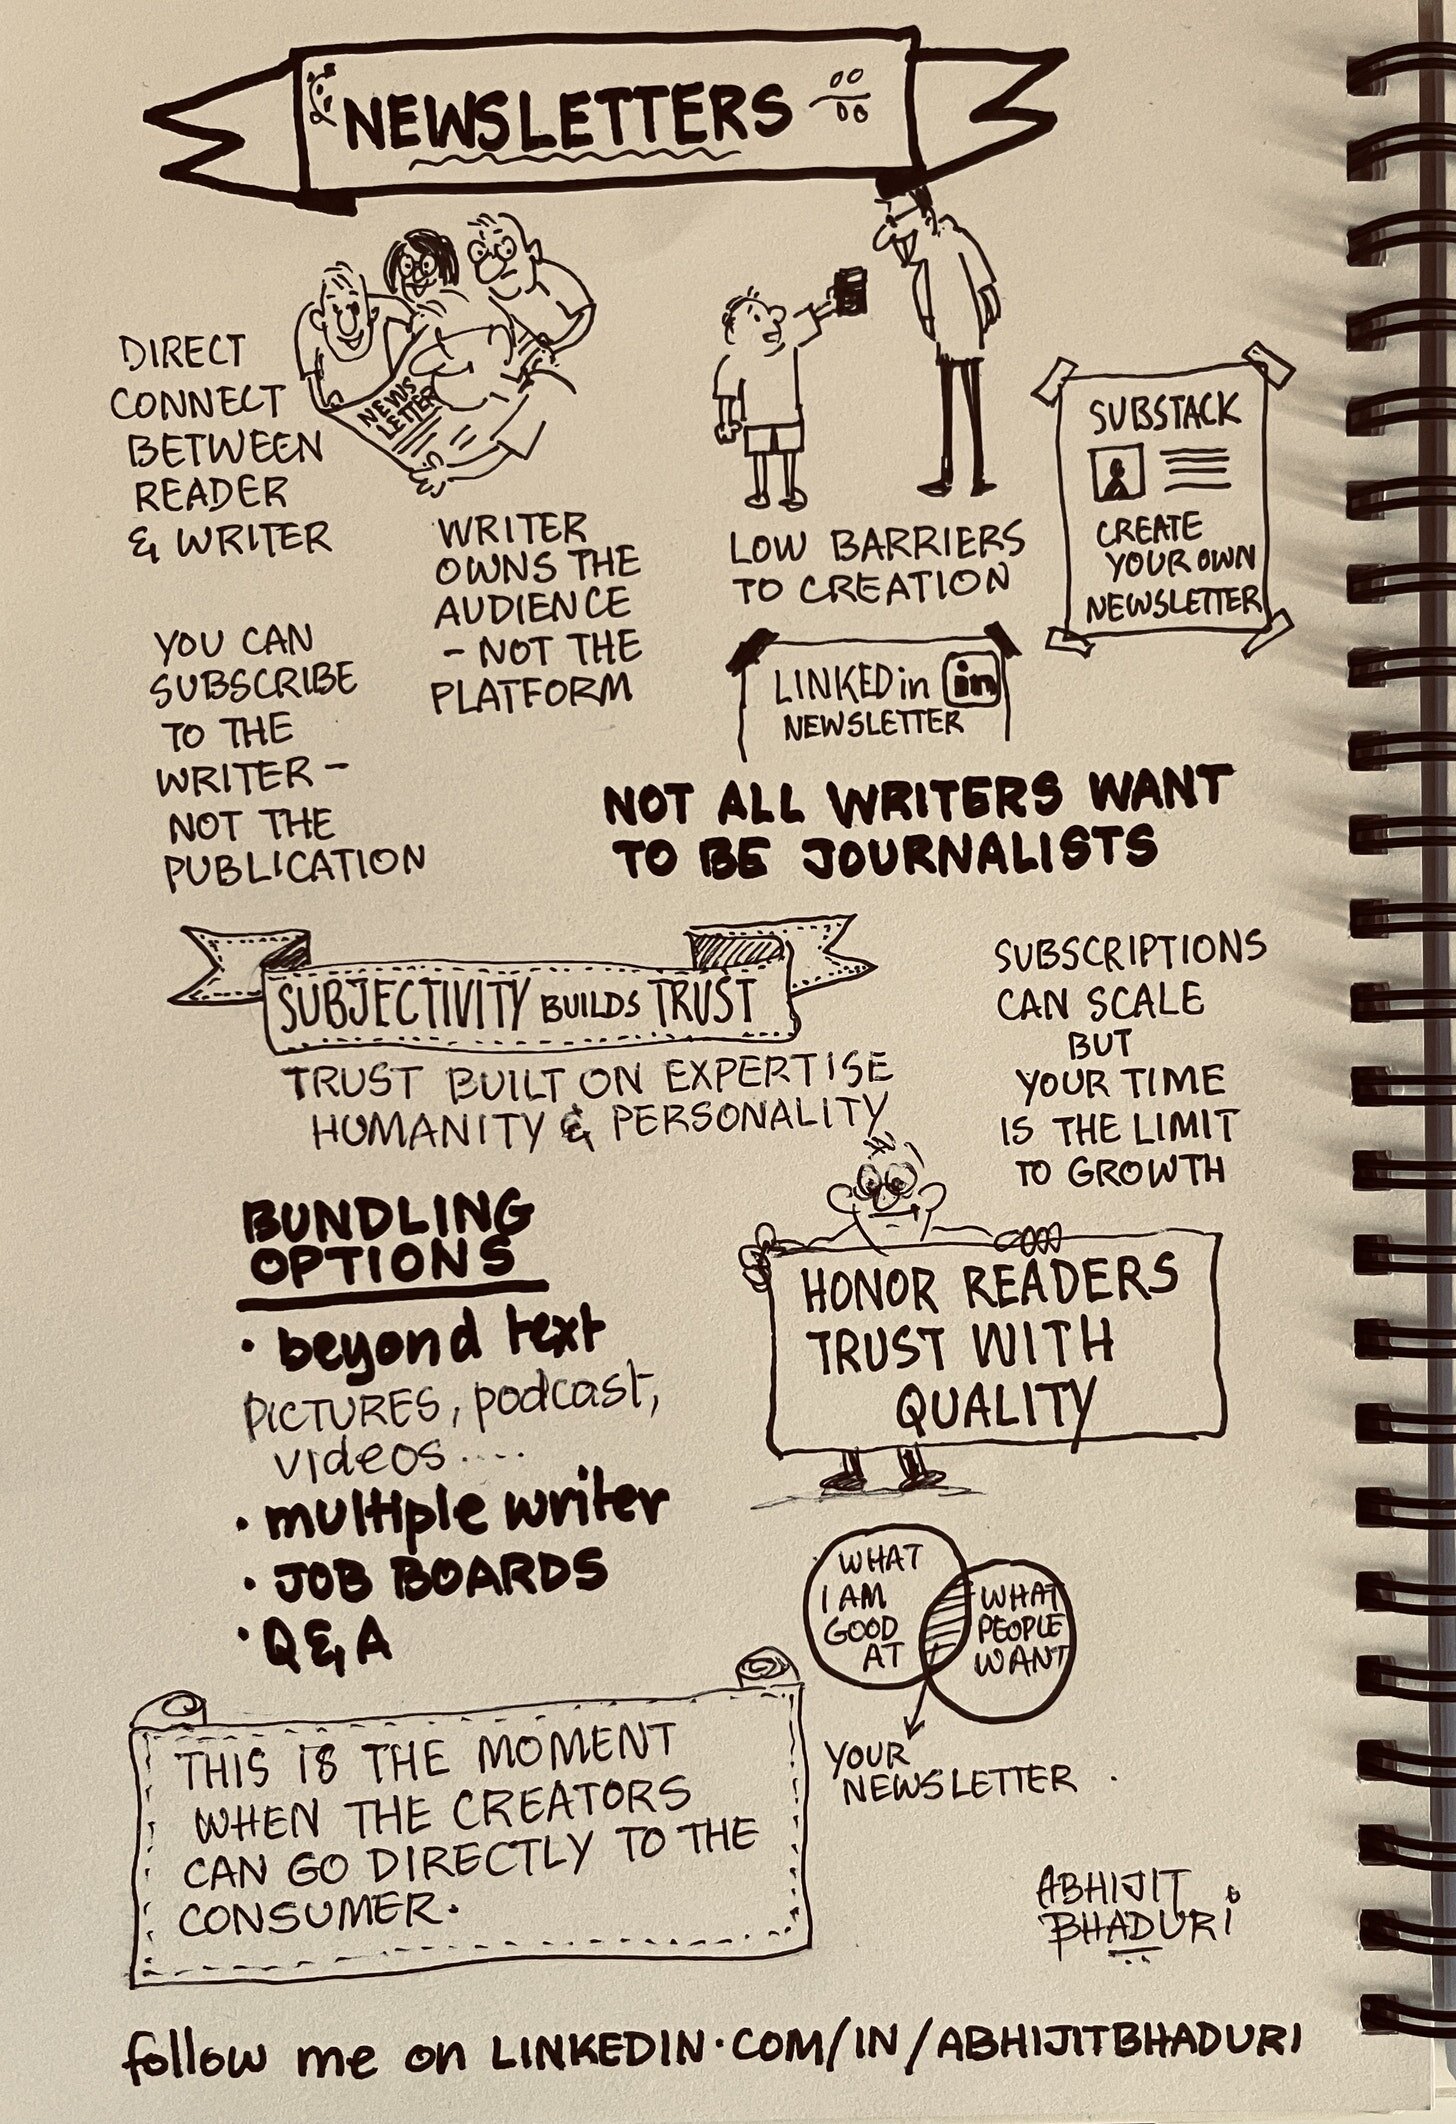 NEWSLETTERS
NEWS
LETTER
DIRECT
CONNECT
BETWEEN
READER
& WRITER
WRITER
OWNS THE
AUDIENCE
- NOT THE
PLATFORM
YOU CAN
SUBSCRIBE
TO THE
WRITER -
NOT THE
PUBLICATION
LOW BARRIERS
TO CREATION
SUBSTACK
CREATE
YOUR OWN
NEWSLETTER
LINKEDin in
NEWSLETTER
NOT ALL WRITERS WANT
TO BE JOURNALISTS
SUBJECTIVITY BUILDS TRUST
TRUST BUILT ON EXPERTISE
HUMANITY & PERSONALITY
SUBSCRIPTIONS
CAN SCALE
BUT
YOUR TIME
IS THE LIMIT
TO GROWTH
BUNDLING
OPTIONS
• beyond text
PICTURES, podcast,
videos ....
• multiple writer
• JOB BOARDS
• Q & A
HONOR READERS
TRUST WITH
QUALITY
WHAT
I AM
GOOD
AT
WHAT
PEOPLE
WANT
YOUR
NEWSLETTER .
THIS IS THE MOMENT
WHEN THE CREATORS
CAN GO DIRECTLY TO THE
CONSUMER.
ABHIJIT
BHADURI
follow me on LINKEDIN.COM/IN/ABHIJITBHADURI